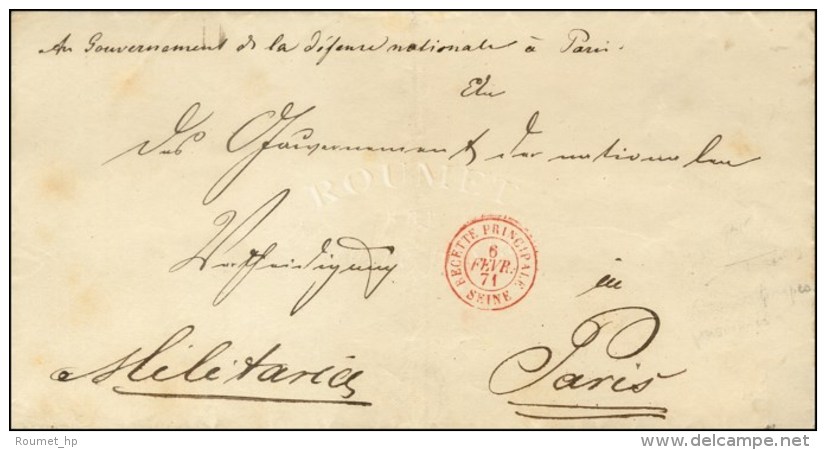 Au Gouvernement de la défense nationale à Paris.
An
das Gouvernement der nationalen
ROUMET
Vertheidigung
RECETTE PRINCIPALE
6
FEVR.
71
SEINE
in
Militaria
Paris
Roumet_hp
www.delcampe.net